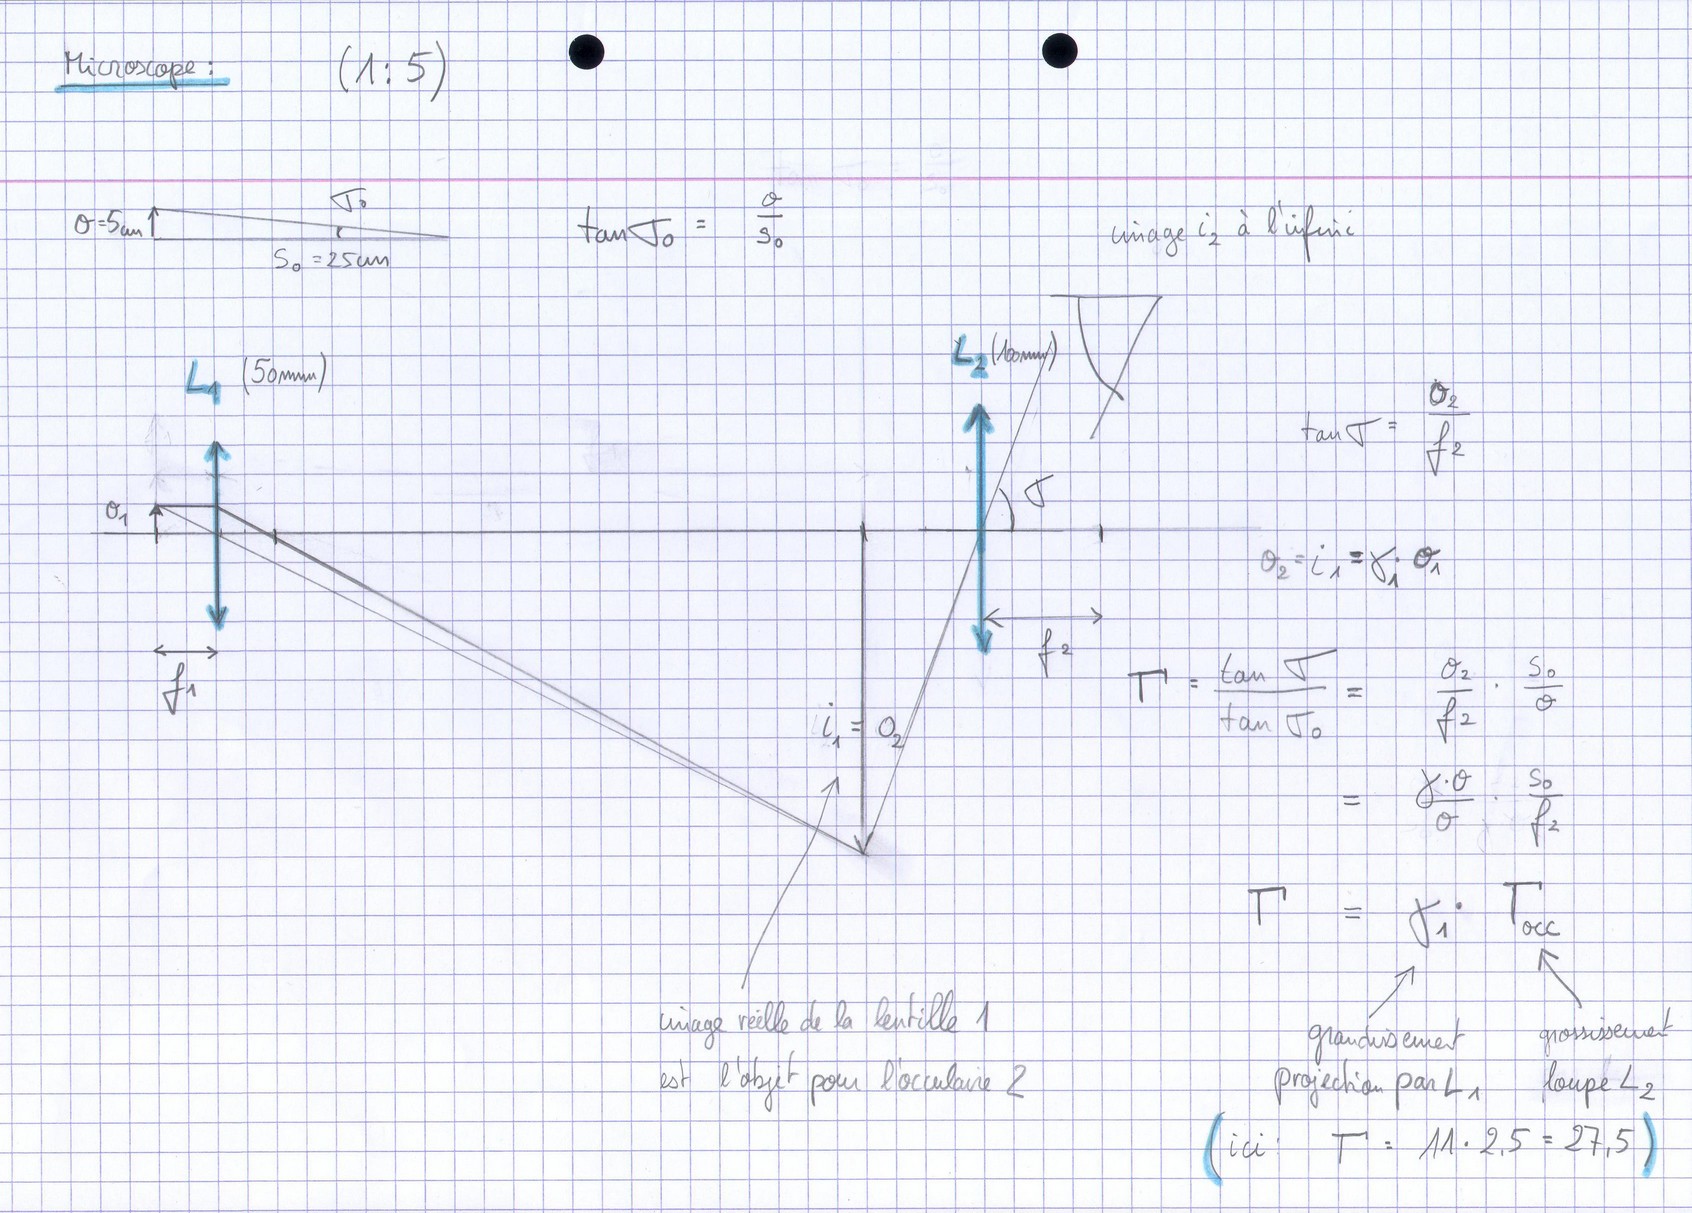 Microscope : (1:5)
σ₀
O=5cm
S₀ = 25cm
tan σ₀ = O / S₀
image i₂ à l'infini
L₁ (50mm)
L₂ (100mm)
tan σ = O₂ / f₂
σ
O₁
O₂ = i₁ = γ₁ · O₁
f₁
f₂
i₁ = O₂
Γ = tan σ / tan σ₀ = O₂ / f₂ · S₀ / O
= γ·O / O · S₀ / f₂
Γ = γ₁ · Γocc
image réelle de la lentille 1
est l'objet pour l'occulaire 2
grandissement
projection par L₁
grossissement
loupe L₂
(ici : Γ = 11 · 2,5 = 27,5)